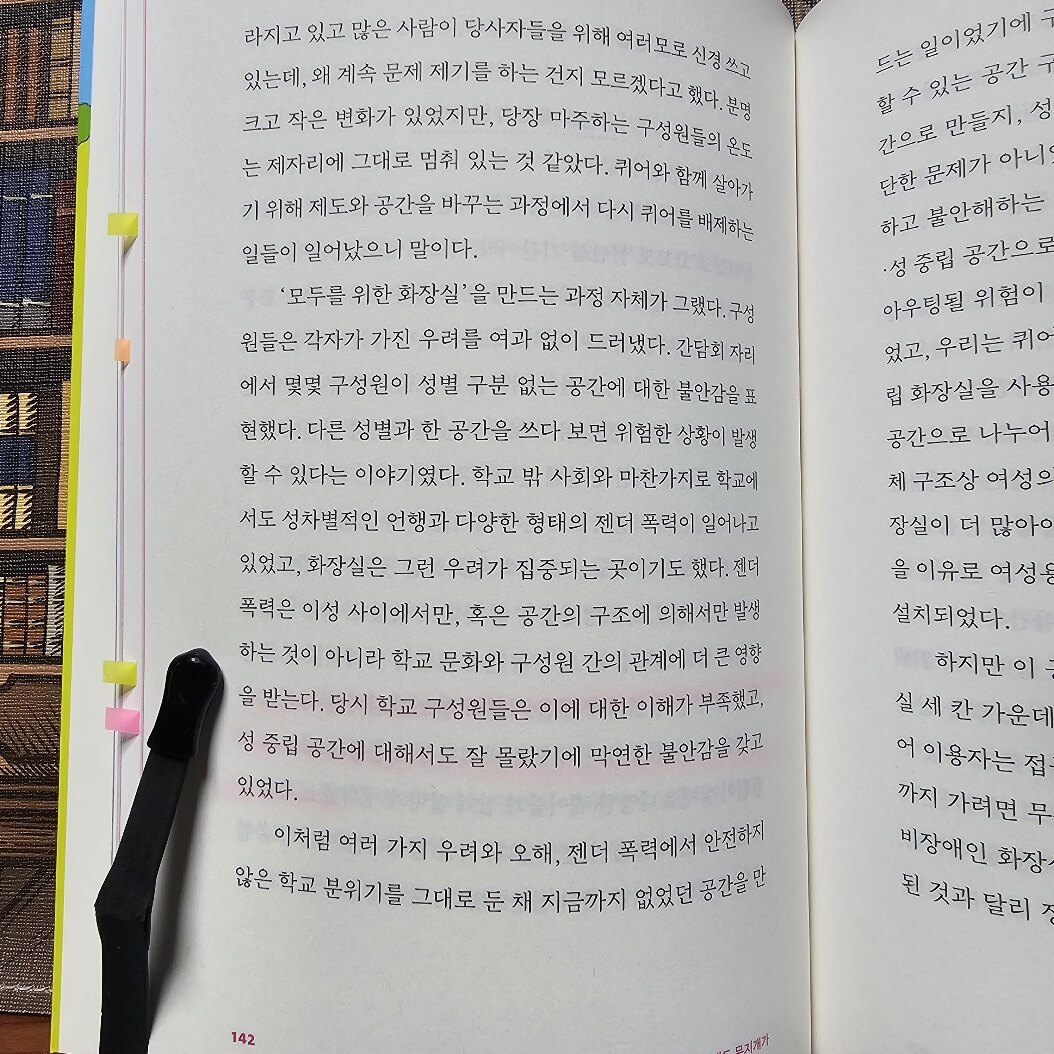 라지고 있고 많은 사람이 당사자들을 위해 여러모로 신경 쓰고
있는데, 왜 계속 문제 제기를 하는 건지 모르겠다고 했다. 분명
크고 작은 변화가 있었지만, 당장 마주하는 구성원들의 온도
는 제자리에 그대로 멈춰 있는 것 같았다. 퀴어와 함께 살아가
기 위해 제도와 공간을 바꾸는 과정에서 다시 퀴어를 배제하는
일들이 일어났으니 말이다.
‘모두를 위한 화장실’을 만드는 과정 자체가 그랬다. 구성
원들은 각자가 가진 우려를 여과 없이 드러냈다. 간담회 자리
에서 몇몇 구성원이 성별 구분 없는 공간에 대한 불안감을 표
현했다. 다른 성별과 한 공간을 쓰다 보면 위험한 상황이 발생
할 수 있다는 이야기였다. 학교 밖 사회와 마찬가지로 학교에
서도 성차별적인 언행과 다양한 형태의 젠더 폭력이 일어나고
있었고, 화장실은 그런 우려가 집중되는 곳이기도 했다. 젠더
폭력은 이성 사이에서만, 혹은 공간의 구조에 의해서만 발생
하는 것이 아니라 학교 문화와 구성원 간의 관계에 더 큰 영향
을 받는다. 당시 학교 구성원들은 이에 대한 이해가 부족했고,
성 중립 공간에 대해서도 잘 몰랐기에 막연한 불안감을 갖고
있었다.
이처럼 여러 가지 우려와 오해, 젠더 폭력에서 안전하지
않은 학교 분위기를 그대로 둔 채 지금까지 없었던 공간을 만
142
무지개가
드는 일이었기에
할 수 있는 공간
간으로 만들지, 성
단한 문제가
하고 불안해하는
·성 중립 공간으로
아우팅될 위험이
었고, 우리는 퀴어
립 화장실을 사용
공간으로 나누어
체 구조상 여성의
장실이 더 많아
을 이유로 여성용
설치되었다.
하지만 이
실 세 칸 가운데
어 이용자는
까지 가려면
비장애인 화장
된 것과 달리